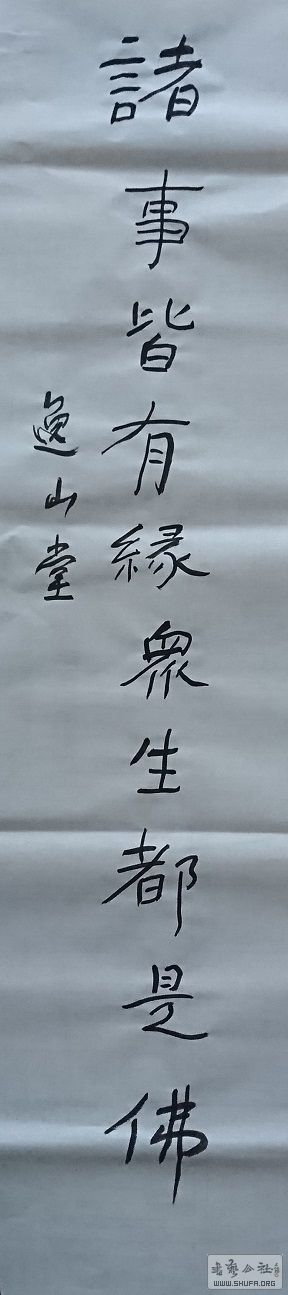 諸事皆有緣眾生都是佛
逸山堂
書法公社
WWW.SHUFA.ORG